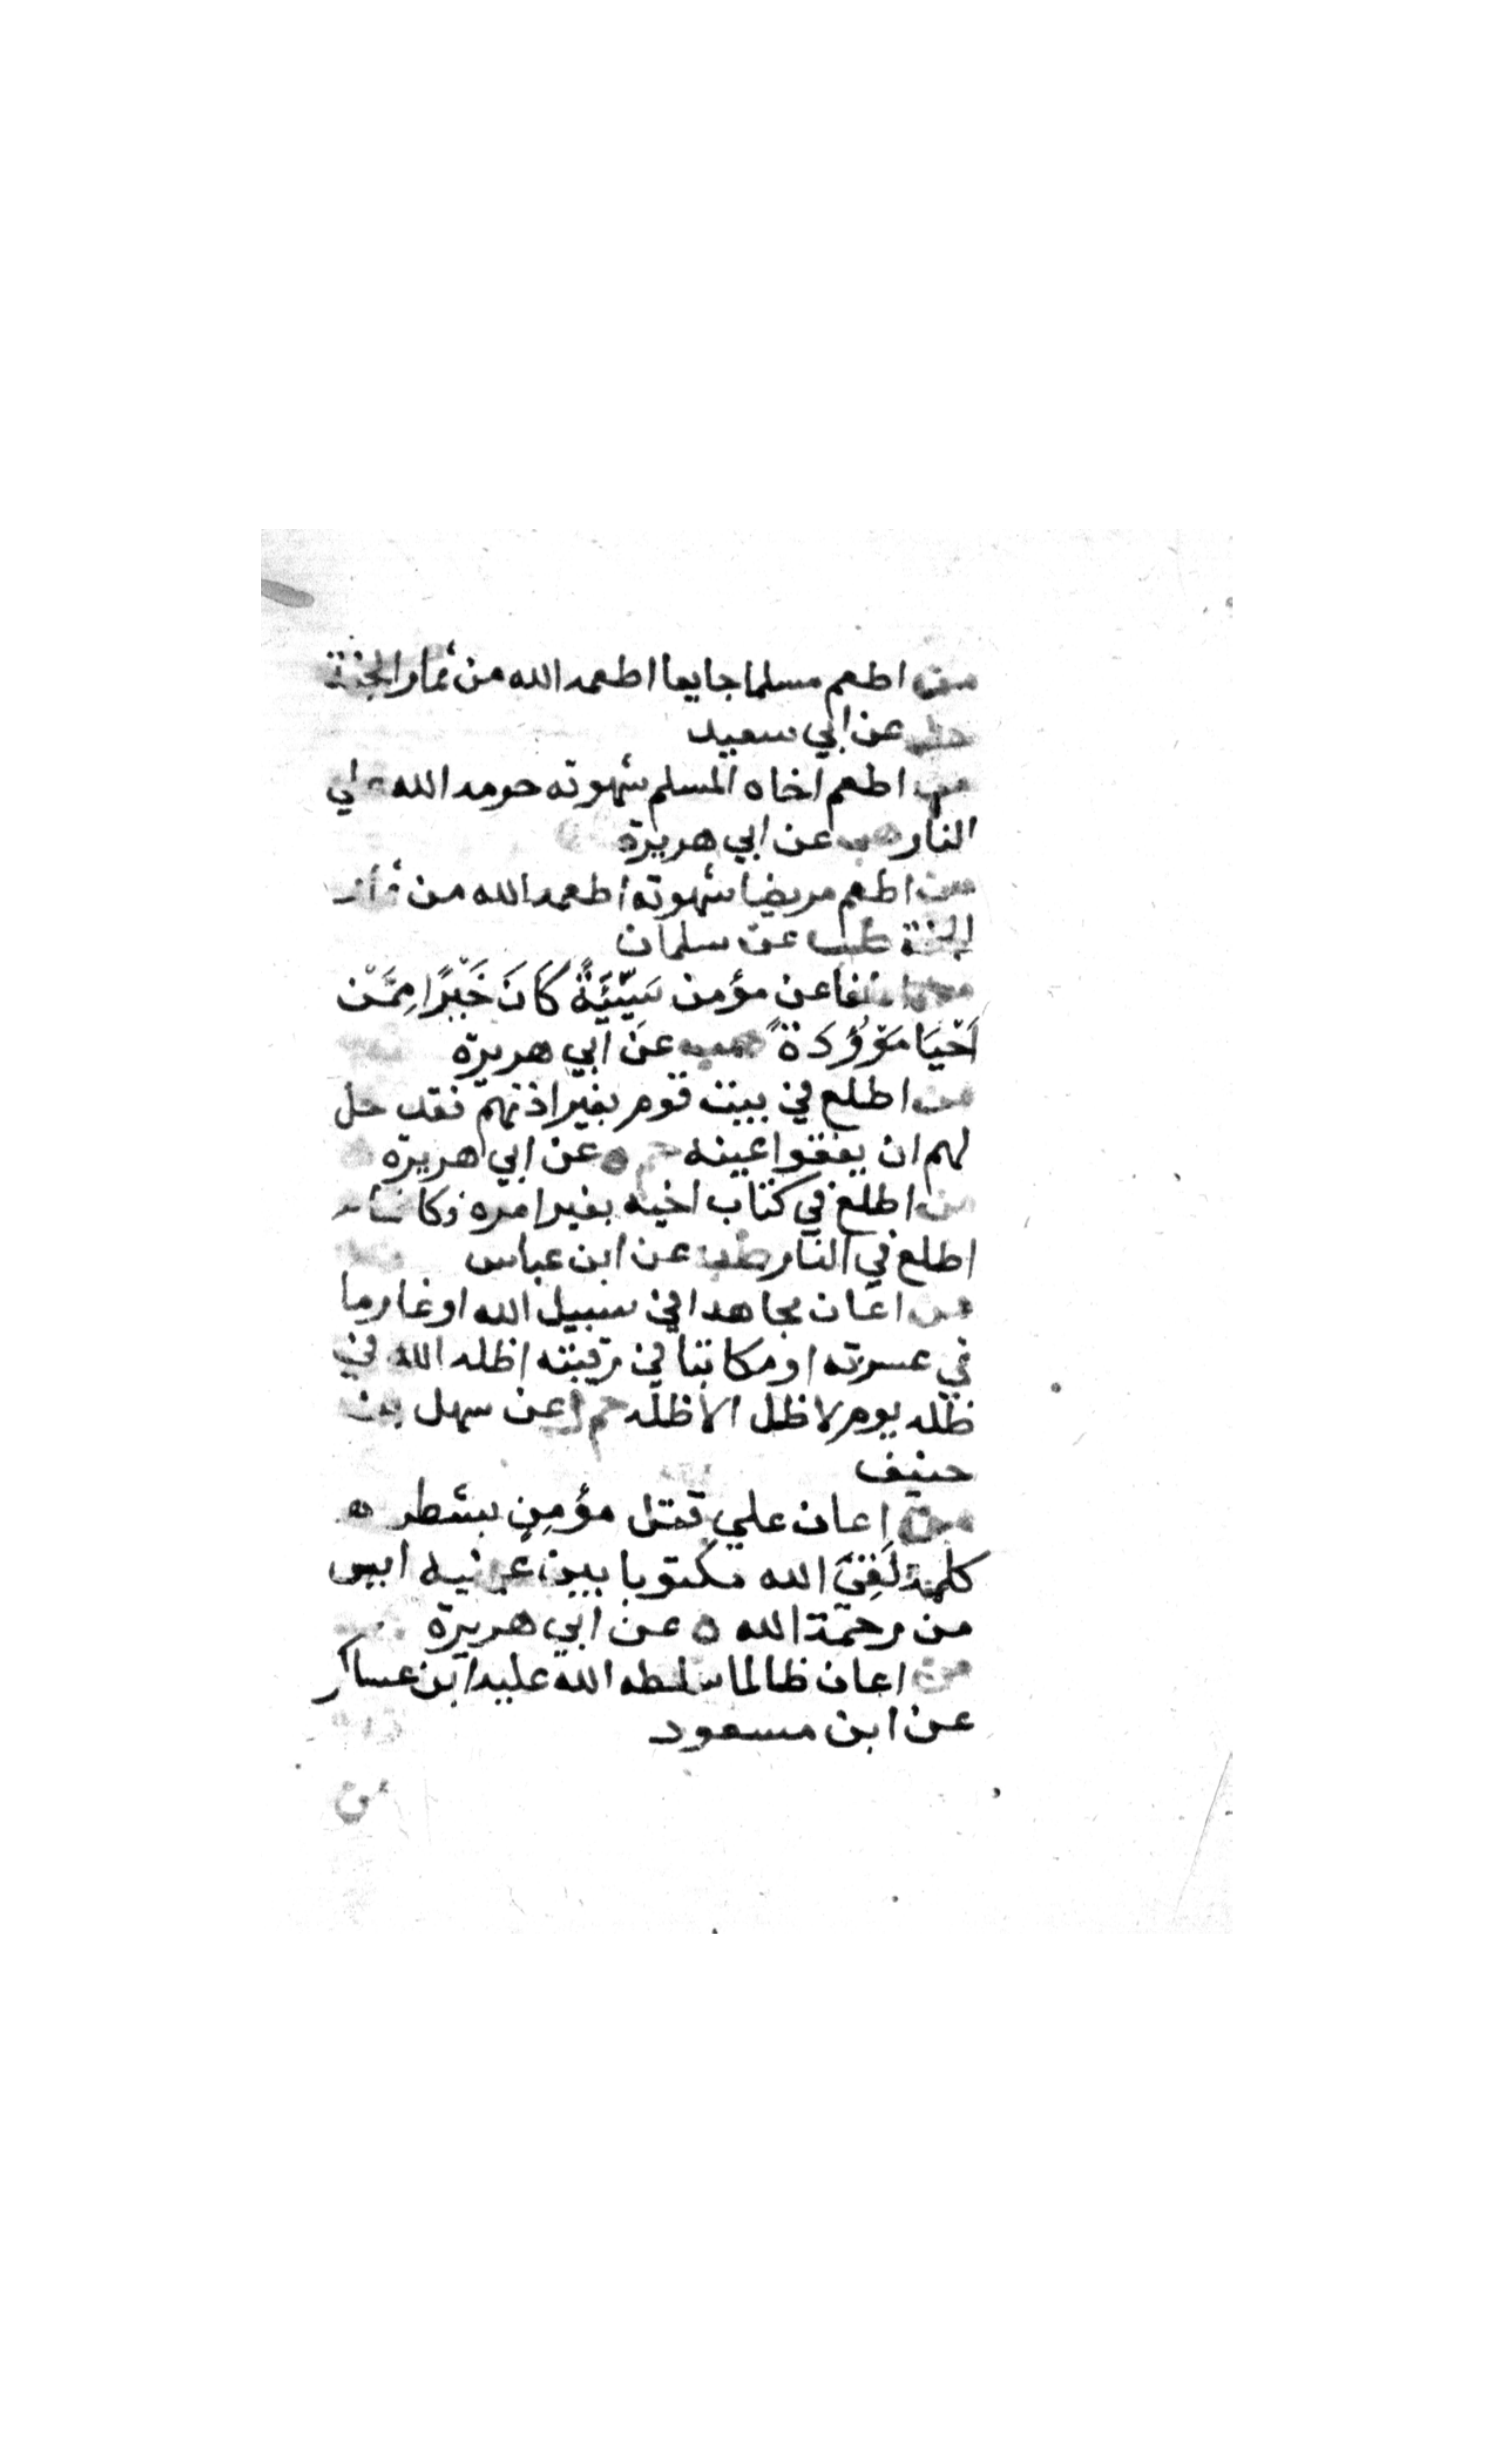 من اطعم مسلما جايعا اطعمه الله من ثمار الجنة
حل عن ابي سعيد
من اطعم اخاه المسلم شهوته حرمه الله علي
النار هب عن ابي هريرة
من اطعم مريضا شهوته اطعمه الله من ثمار
الجنة طب عن سلمان
من اطفا عن مؤمن سَيِّئَةً كَانَ خَيْرًا مِمَّنْ
اَحْيَا مَوْؤُدَةً هب عن ابي هريرة
من اطلع في بيت قوم بغير اذنهم فقد حل
لهم ان يفقوا عينه حم م عن ابي هريرة
من اطلع في كتاب اخيه بغير امره فكانما
اطلع في النار طب عن ابن عباس
من اعان مجاهدا في سبيل الله او غارما
في عسرته او مكاتبا في رقبته اظله الله في
ظله يوم لا ظل الا ظله حم ك عن سهل بن
حنيف
من اعان علي قتل مؤمن بشطر
كلمة لَقِيَ الله مكتوبا بين عينيه ايس
من رحمة الله ه عن ابي هريرة
من اعان ظالما سلطه الله عليه ابن عساكر
عن ابن مسعود
من